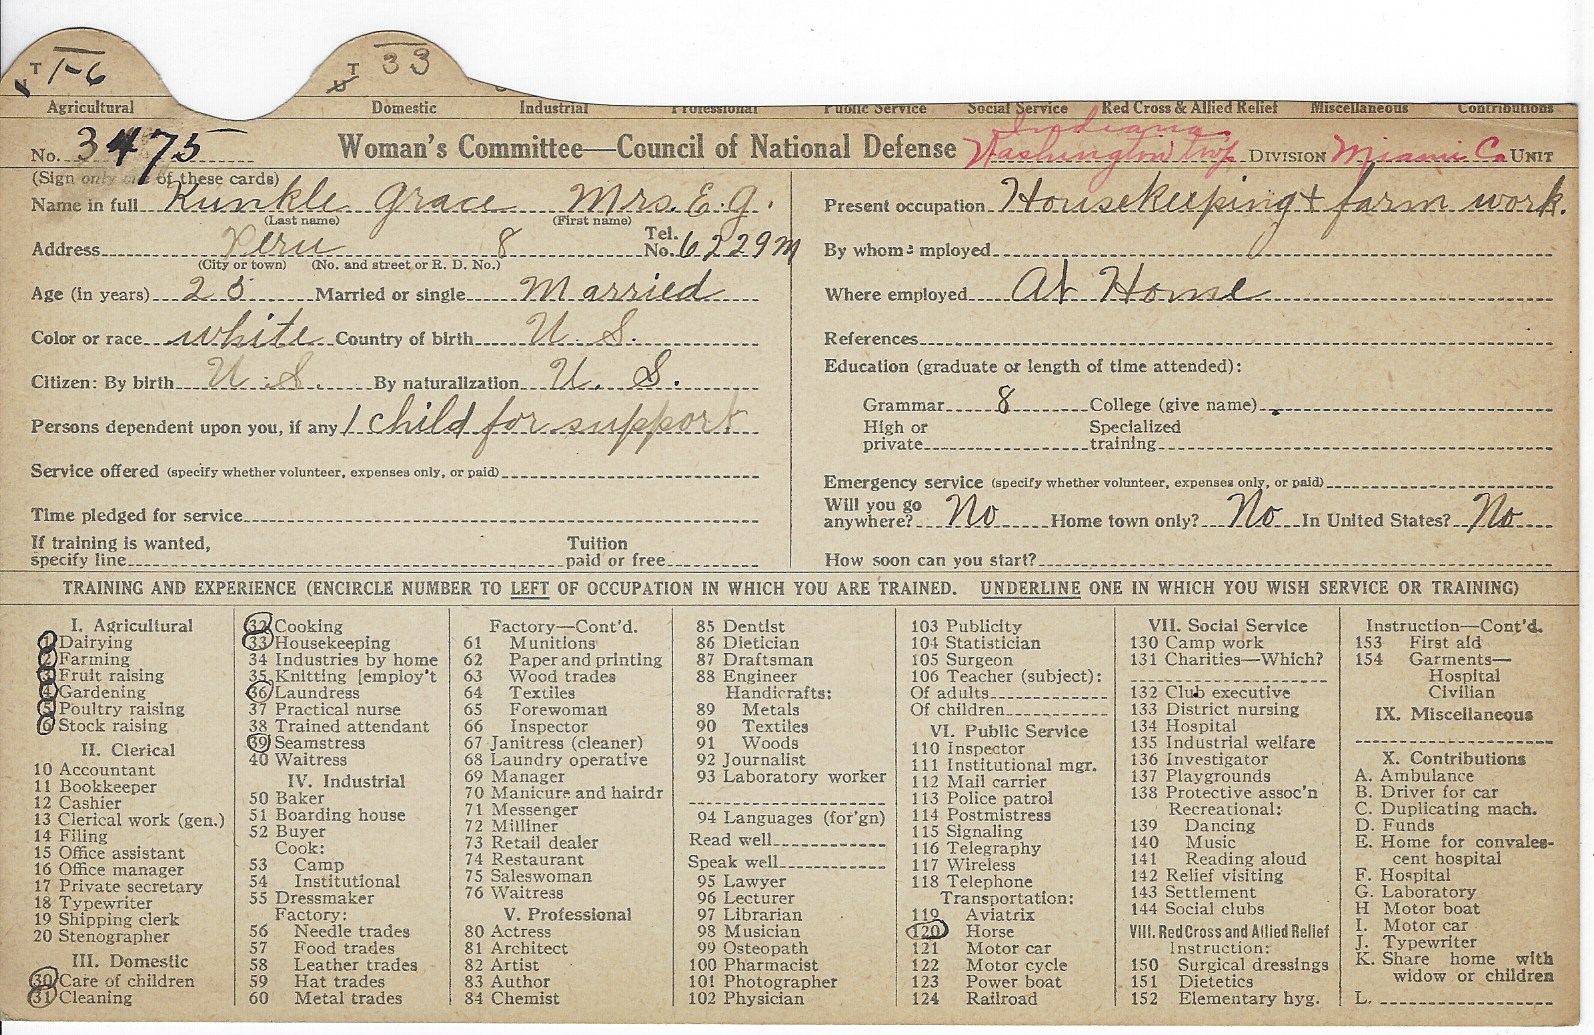 T 1-6
T 33
Agricultural Domestic Industrial Professional Public Service Social Service Red Cross & Allied Relief Miscellaneous Contributions
No. 3475 Woman's Committee—Council of National Defense Indiana Washington twp. DIVISION Miami Co. UNIT
(Sign only one of these cards)
Name in full Kunkle Grace Mrs. E. G.
(Last name) (First name)
Address Peru 8 Tel. No. 6229M
(City or town) (No. and street or R. D. No.)
Age (in years) 25 Married or single Married
Color or race white Country of birth U. S.
Citizen: By birth U. S. By naturalization U. S.
Persons dependent upon you, if any 1 child for support
Service offered (specify whether volunteer, expenses only, or paid)
Time pledged for service
If training is wanted, specify line Tuition paid or free
Present occupation Housekeeping & farm work.
By whom employed
Where employed At Home
References
Education (graduate or length of time attended):
Grammar 8 College (give name)
High or private Specialized training
Emergency service (specify whether volunteer, expenses only, or paid)
Will you go anywhere? No Home town only? No In United States? No
How soon can you start?
TRAINING AND EXPERIENCE (ENCIRCLE NUMBER TO LEFT OF OCCUPATION IN WHICH YOU ARE TRAINED. UNDERLINE ONE IN WHICH YOU WISH SERVICE OR TRAINING)
I. Agricultural
1 Dairying
2 Farming
3 Fruit raising
4 Gardening
5 Poultry raising
6 Stock raising
II. Clerical
10 Accountant
11 Bookkeeper
12 Cashier
13 Clerical work (gen.)
14 Filing
15 Office assistant
16 Office manager
17 Private secretary
18 Typewriter
19 Shipping clerk
20 Stenographer
III. Domestic
30 Care of children
31 Cleaning
32 Cooking
33 Housekeeping
34 Industries by home
35 Knitting [employ't
36 Laundress
37 Practical nurse
38 Trained attendant
39 Seamstress
40 Waitress
IV. Industrial
50 Baker
51 Boarding house
52 Buyer
Cook:
53 Camp
54 Institutional
55 Dressmaker
Factory:
56 Needle trades
57 Food trades
58 Leather trades
59 Hat trades
60 Metal trades
Factory—Cont'd.
61 Munitions
62 Paper and printing
63 Wood trades
64 Textiles
65 Forewoman
66 Inspector
67 Janitress (cleaner)
68 Laundry operative
69 Manager
70 Manicure and hairdr
71 Messenger
72 Milliner
73 Retail dealer
74 Restaurant
75 Saleswoman
76 Waitress
V. Professional
80 Actress
81 Architect
82 Artist
83 Author
84 Chemist
85 Dentist
86 Dietician
87 Draftsman
88 Engineer
Handicrafts:
89 Metals
90 Textiles
91 Woods
92 Journalist
93 Laboratory worker
94 Languages (for'gn)
Read well
Speak well
95 Lawyer
96 Lecturer
97 Librarian
98 Musician
99 Osteopath
100 Pharmacist
101 Photographer
102 Physician
103 Publicity
104 Statistician
105 Surgeon
106 Teacher (subject):
Of adults
Of children
VI. Public Service
110 Inspector
111 Institutional mgr.
112 Mail carrier
113 Police patrol
114 Postmistress
115 Signaling
116 Telegraphy
117 Wireless
118 Telephone
Transportation:
119 Aviatrix
120 Horse
121 Motor car
122 Motor cycle
123 Power boat
124 Railroad
VII. Social Service
130 Camp work
131 Charities—Which?
132 Club executive
133 District nursing
134 Hospital
135 Industrial welfare
136 Investigator
137 Playgrounds
138 Protective assoc'n
Recreational:
139 Dancing
140 Music
141 Reading aloud
142 Relief visiting
143 Settlement
144 Social clubs
VIII. Red Cross and Allied Relief
Instruction:
150 Surgical dressings
151 Dietetics
152 Elementary hyg.
Instruction—Cont'd.
153 First aid
154 Garments—
Hospital
Civilian
IX. Miscellaneous
X. Contributions
A. Ambulance
B. Driver for car
C. Duplicating mach.
D. Funds
E. Home for convales-
cent hospital
F. Hospital
G. Laboratory
H Motor boat
I. Motor car
J. Typewriter
K. Share home with
widow or children
L.